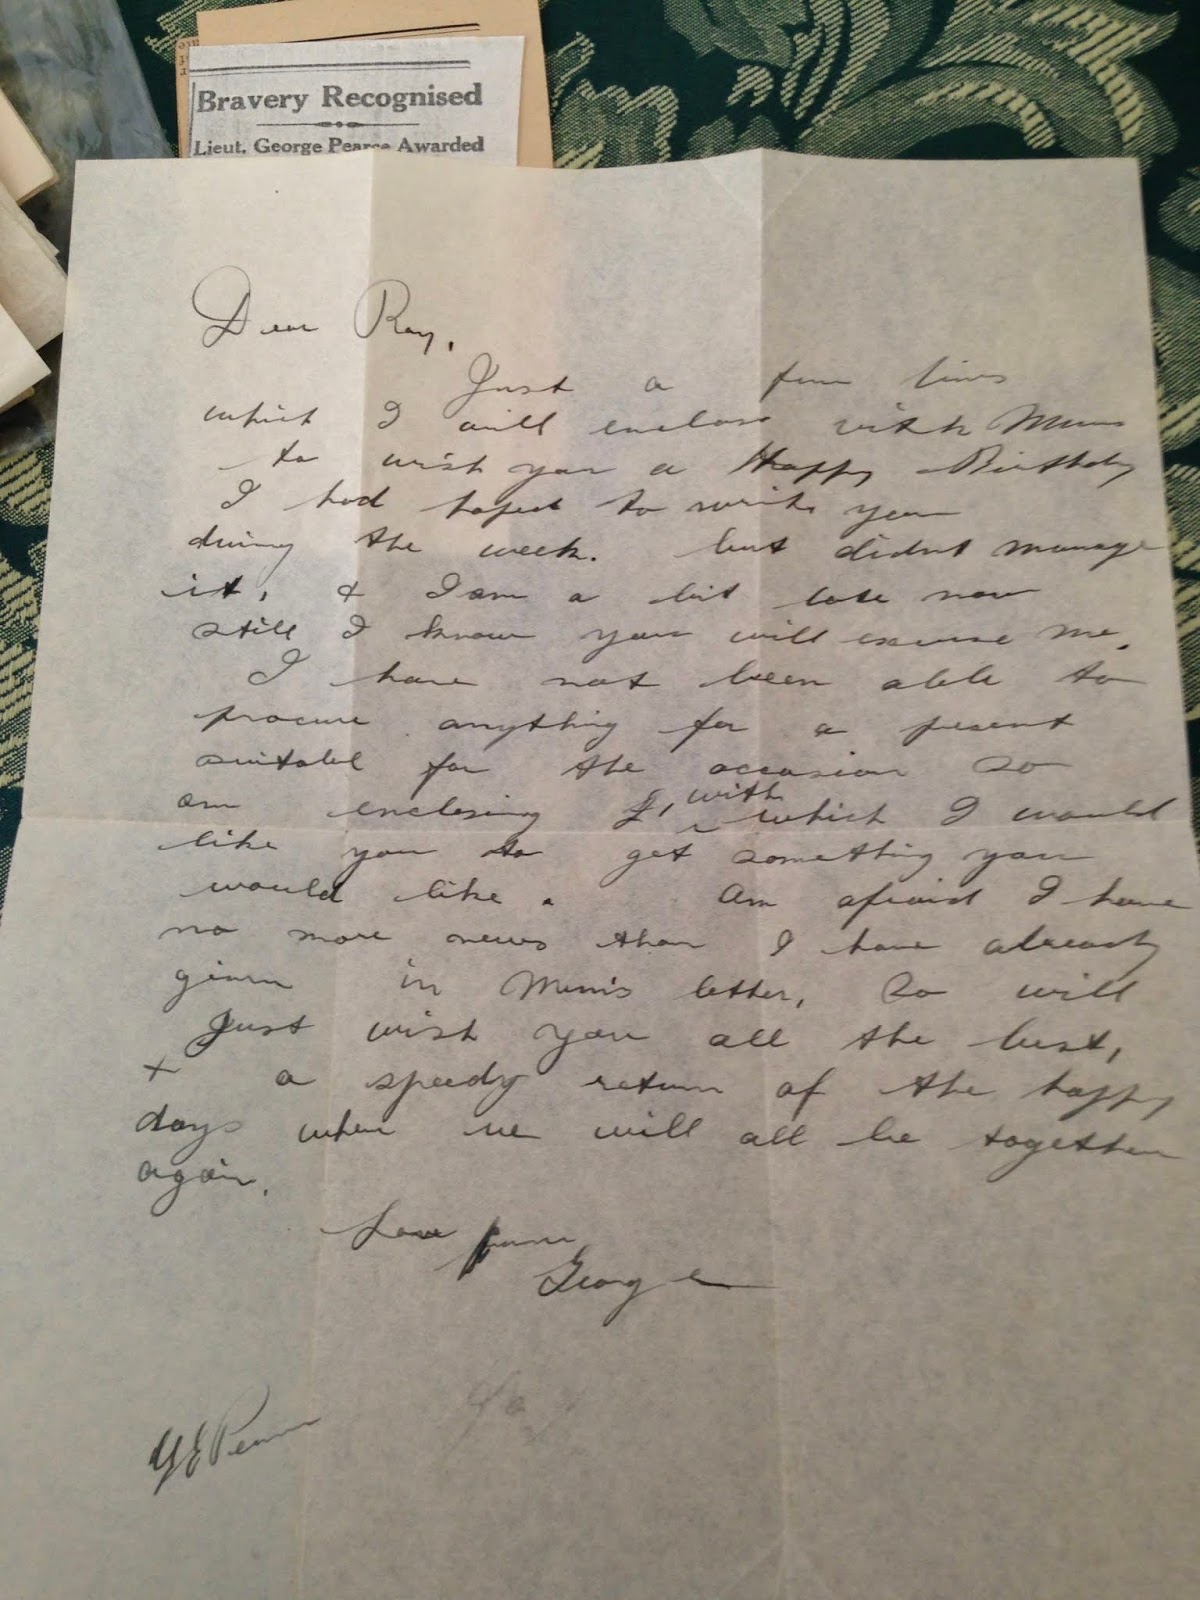 Bravery Recognised
Lieut. George Pearce Awarded
Dear Ray,
Just a few lines
which I will enclose with Mums
to wish you a Happy Birthday
I had hoped to write you
during the week. but didnt manage
it, & I am a bit late now
still I know you will excuse me.
I have not been able to
procure anything for a present
suitable for the occasion so
am enclosing £1 with which I would
like you to get something you
would like. Am afraid I have
no more news than I have already
given in Mum's letter, so will
just wish you all the best,
& a speedy return of the happy
days when we will all be together
again.
Love from
George
GE Pearce